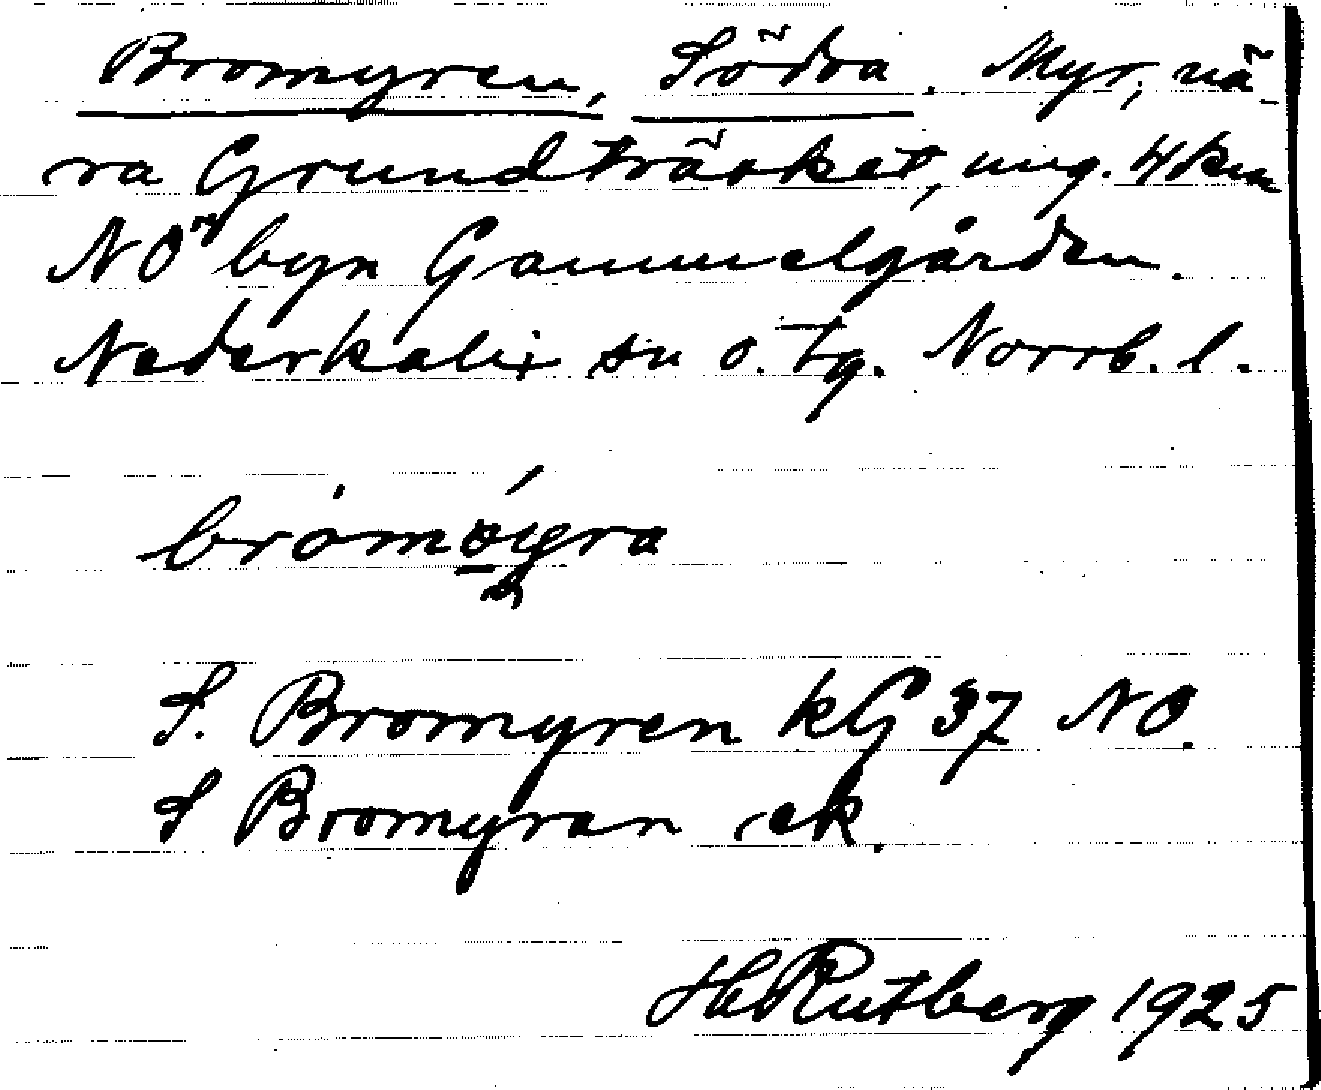 Bromyren, Södra. Myr, nä-
ra Grundträsket, ung. 4 km
NO byn Gammelgården.
Nederkalix sn o. tg. Norrb. l.
S. Bromyren kG 37 NO.
S Bromyran ek.
H Rutberg 1925